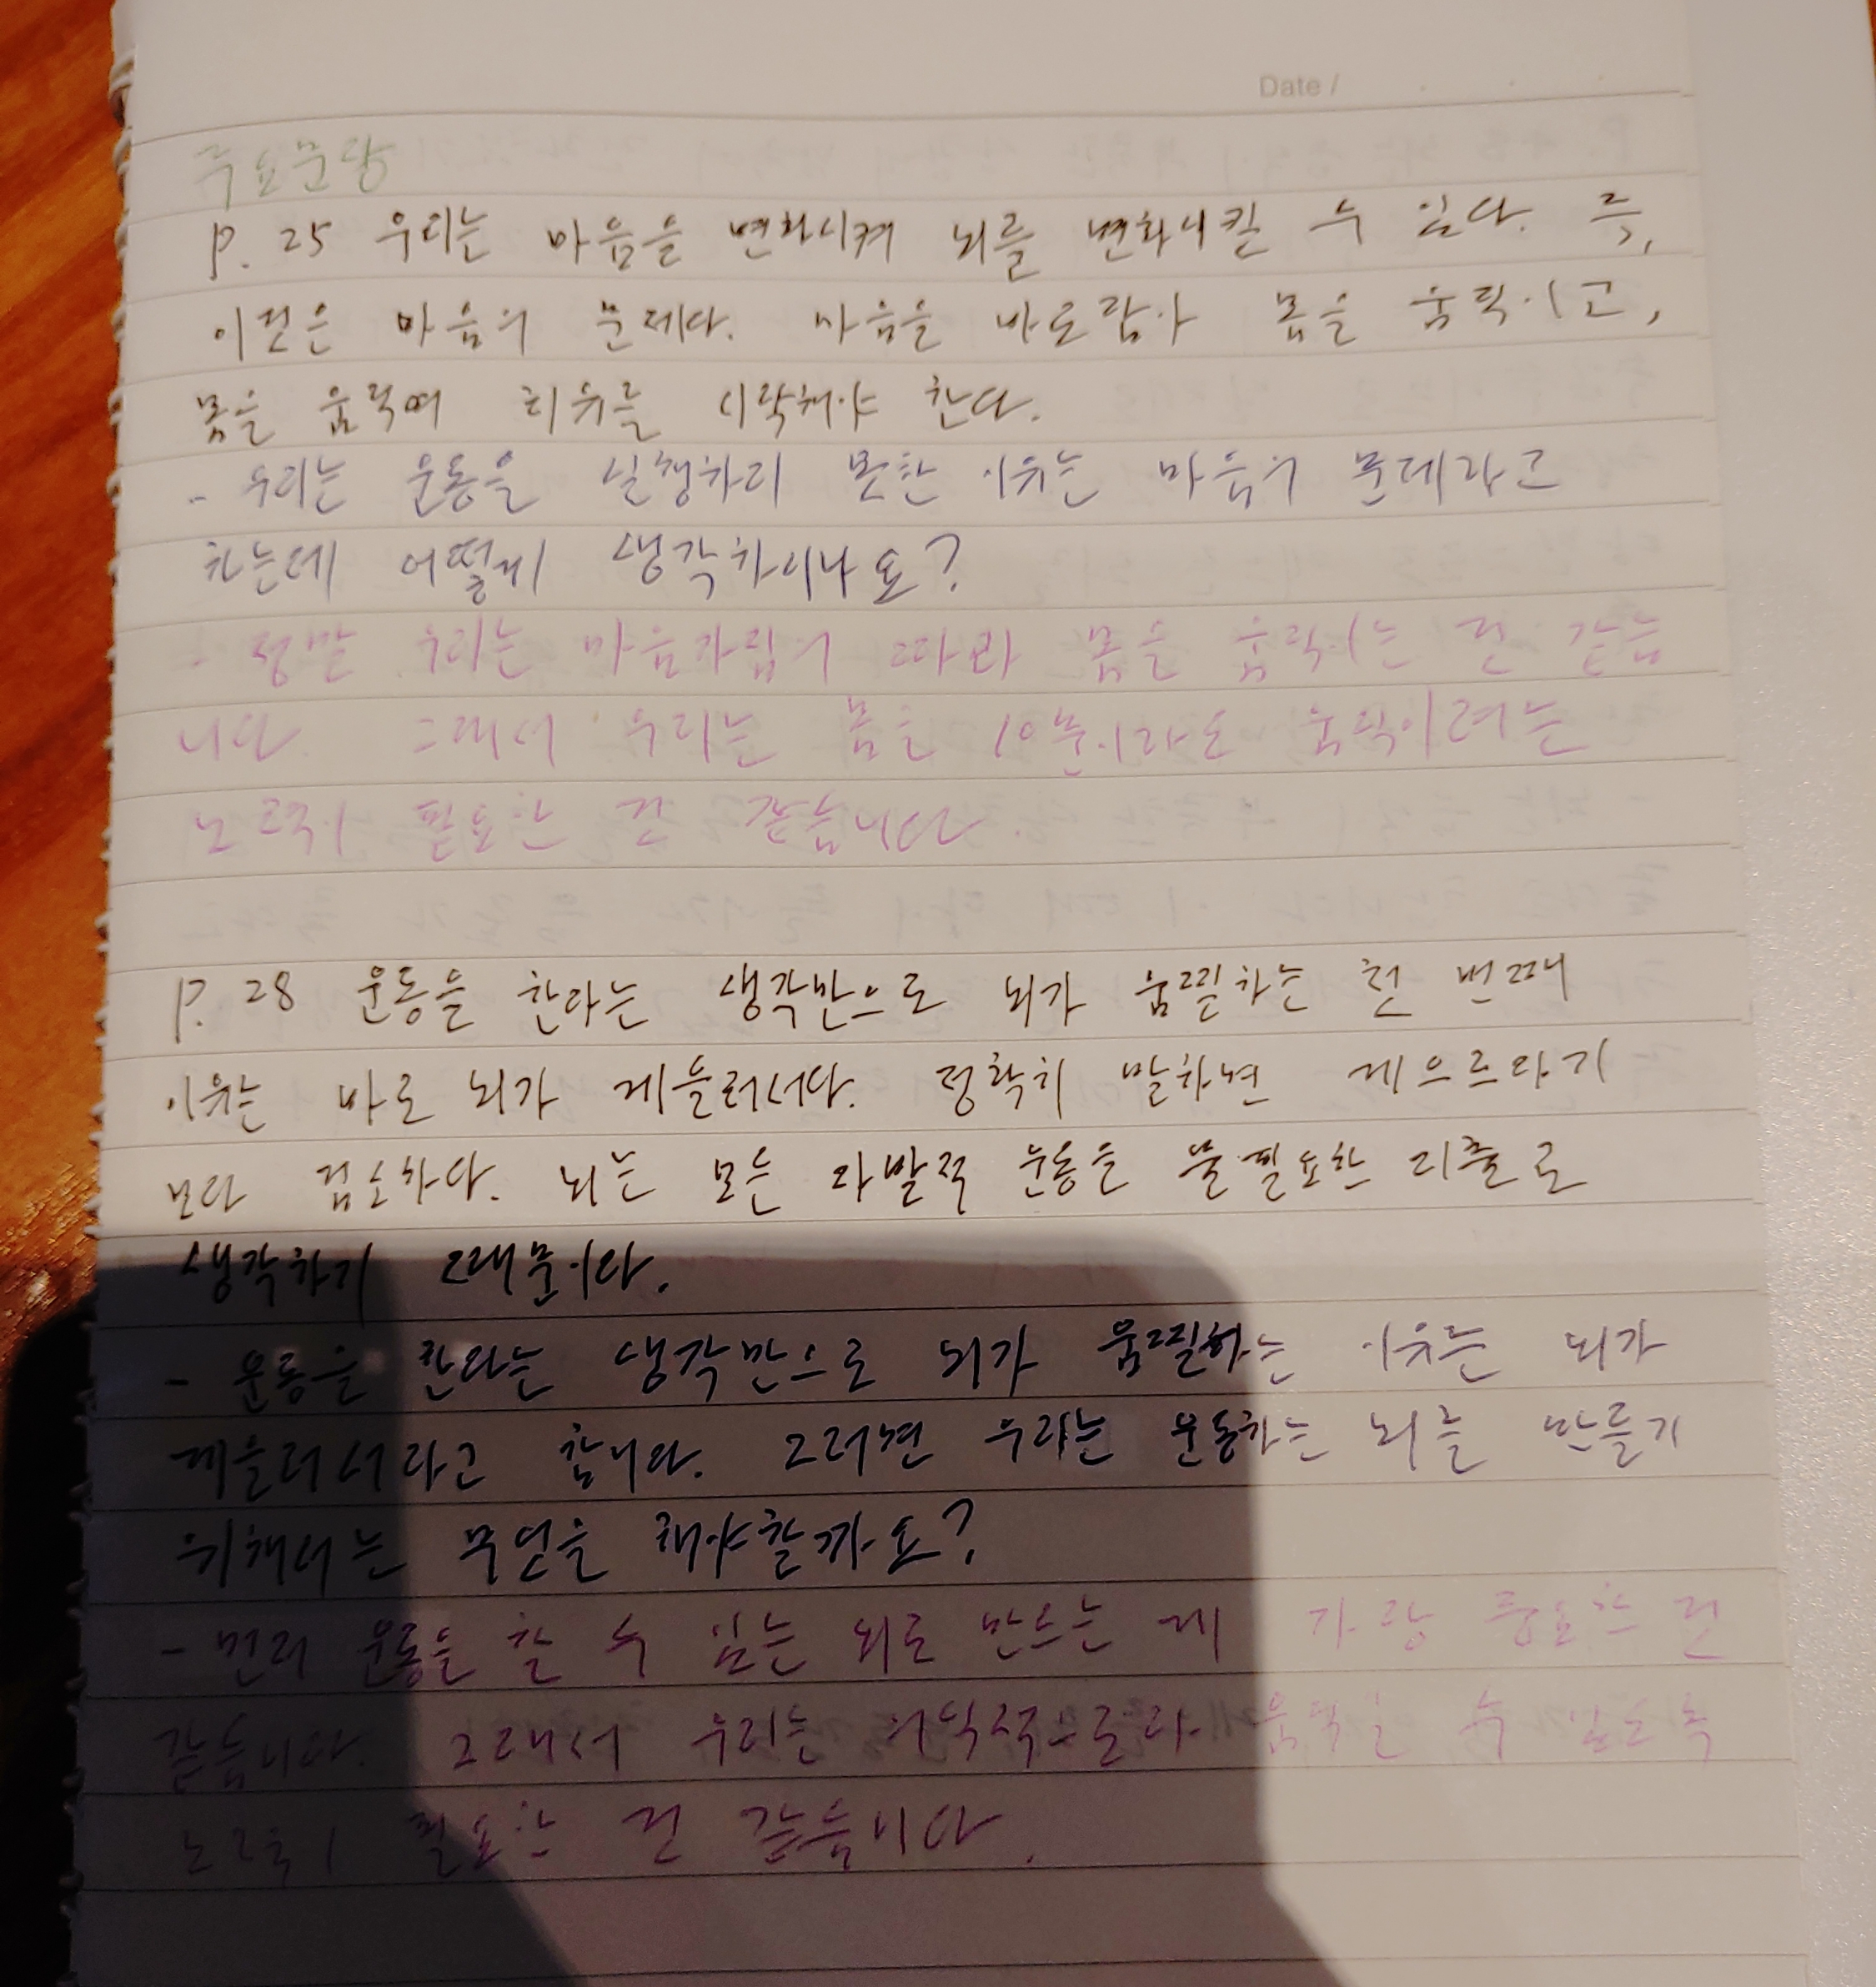 Date /
주요문장
P. 25 우리는 마음을 변화시켜 뇌를 변화시킬 수 있다. 즉,
이것은 마음의 문제다. 마음을 바로잡아 몸을 움직이고,
몸을 움직여 치유를 시작해야 한다.
- 우리는 운동을 실행하지 못한 이유는 마음의 문제라고
하는데 어떻게 생각하시나요?
- 정말 우리는 마음가짐에 따라 몸을 움직이는 것 같습
니다. 그래서 우리는 몸을 10분이라도 움직이려는
노력이 필요한 것 같습니다.
P. 28 운동을 한다는 생각만으로 뇌가 움찔하는 첫 번째
이유는 바로 뇌가 게을러서다. 정확히 말하면 게으르다기
보다 검소하다. 뇌는 모든 자발적 운동을 불필요한 지출로
생각하기 때문이다.
- 운동을 한다는 생각만으로 뇌가 움찔하는 이유는 뇌가
게을러서라고 합니다. 그러면 우리는 운동하는 뇌를 만들기
위해서는 무엇을 해야할까요?
- 먼저 운동을 할 수 있는 뇌로 만드는 게 가장 중요한 것
같습니다. 그래서 우리는 의식적으로라 움직일 수 있도록
노력이 필요한 것 같습니다.